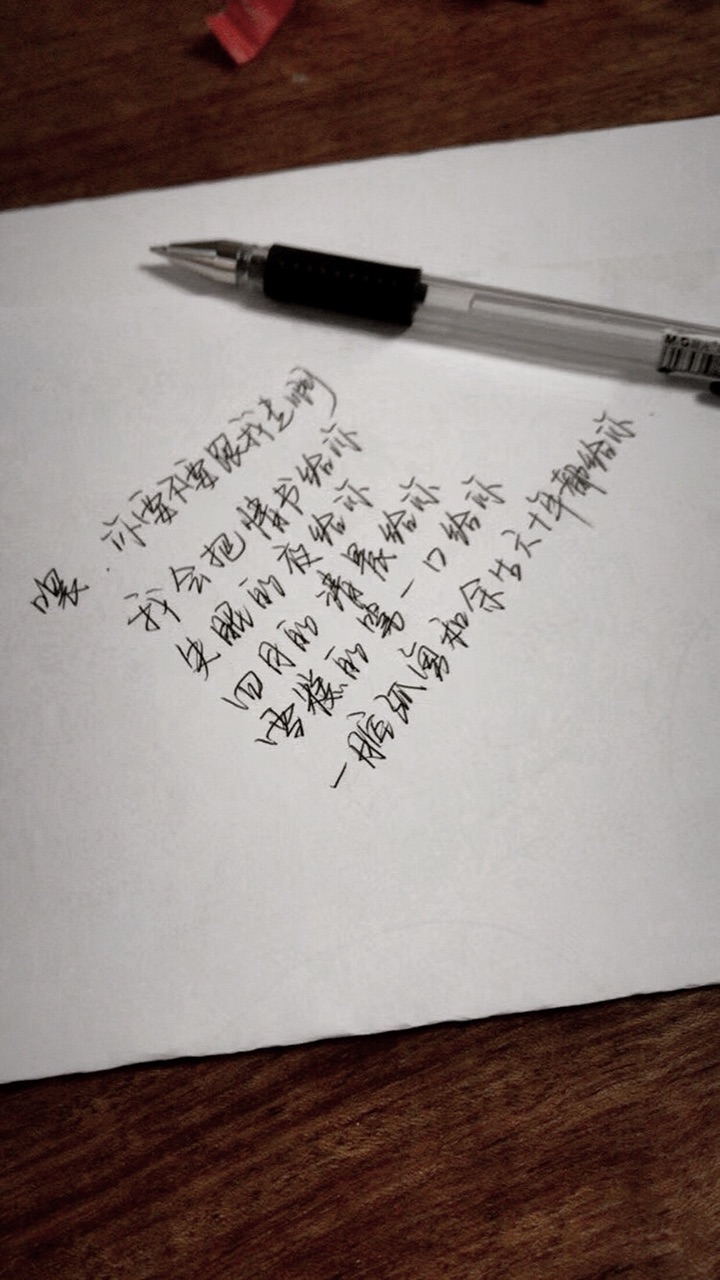 喂.你要不要跟我走啊
我会把情书给你
失眠的夜给你
四月的清晨给你
雪糕的第一口给你
一腔孤勇和余生六十年都给你
M&G